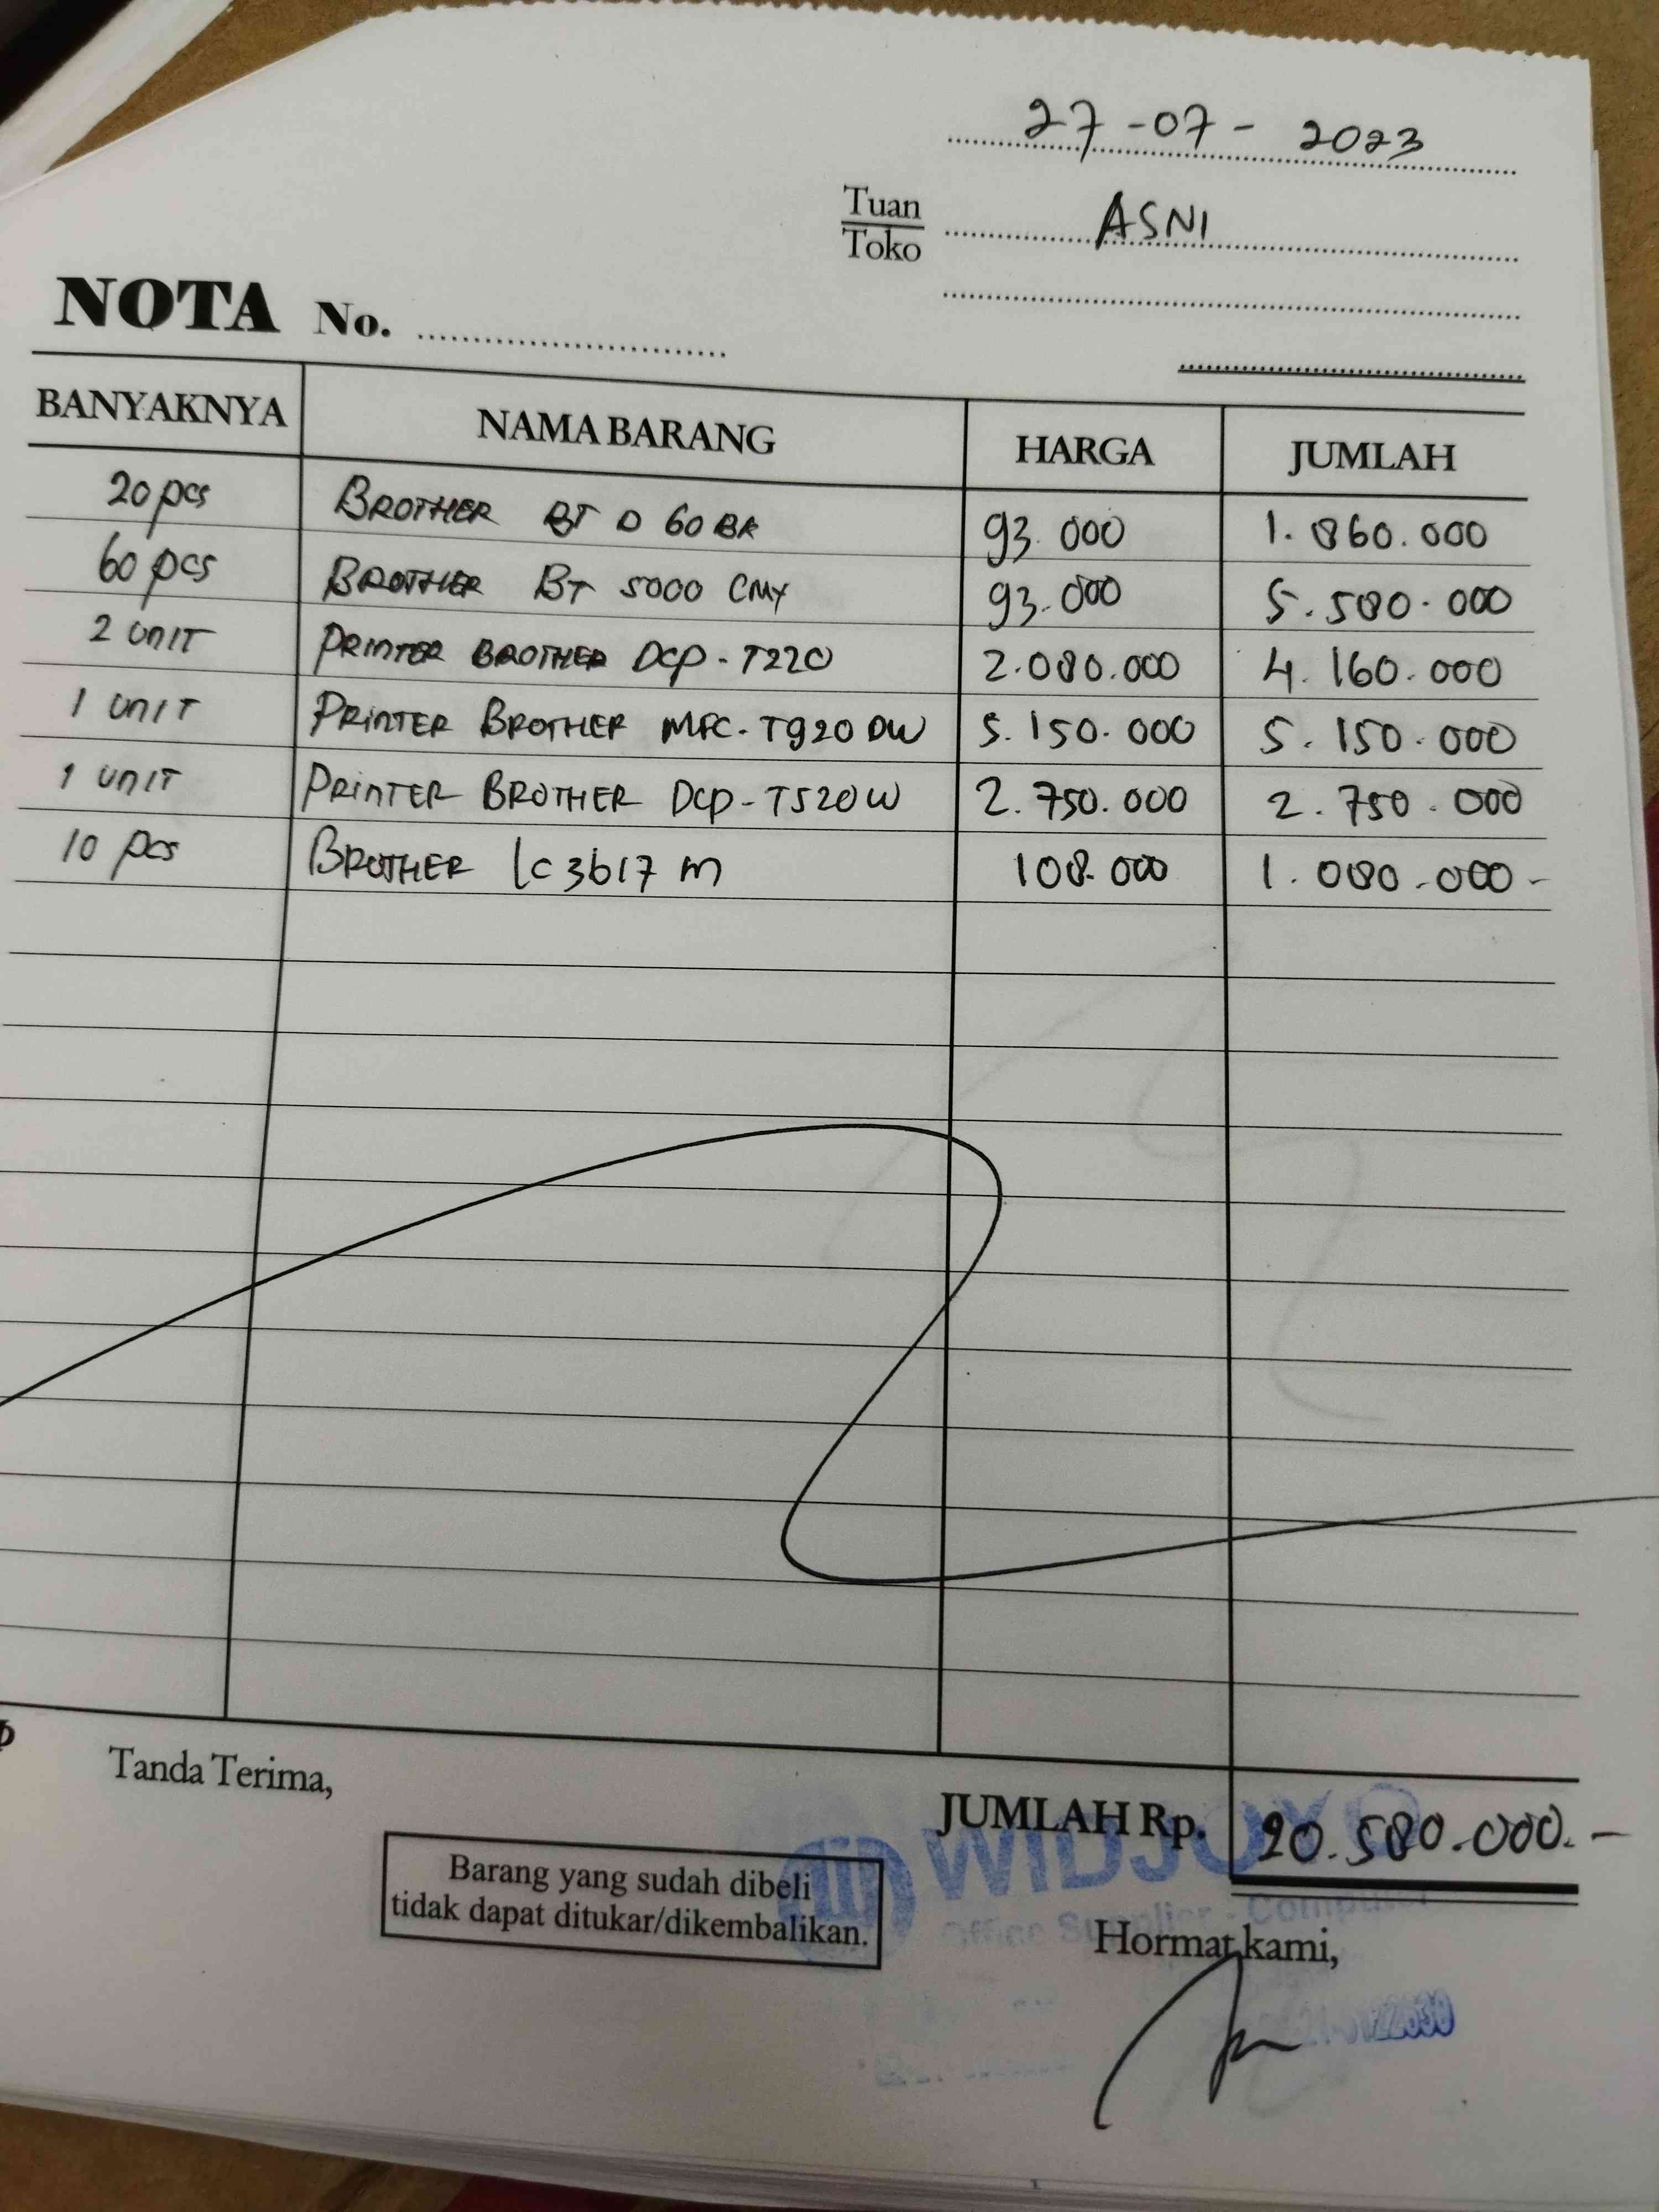 27-07-2023
Tuan
Toko ASNI
NOTA No.
BANYAKNYA NAMA BARANG HARGA JUMLAH
20 pcs BROTHER BT D 60 BK 93.000 1.860.000
60 pcs BROTHER BT 5000 CMY 93.000 5.580.000
2 UNIT PRINTER BROTHER DCP-T220 2.080.000 4.160.000
1 UNIT PRINTER BROTHER MFC-T920 DW 5.150.000 5.150.000
1 UNIT PRINTER BROTHER DCP-T520W 2.750.000 2.750.000
10 pcs BROTHER LC 3617 M 108.000 1.080.000-
Tanda Terima,
JUMLAH Rp. 20.580.000.-
Barang yang sudah dibeli
tidak dapat ditukar/dikembalikan.
WIDJOYO
Office Supplier - Computer
Hormat kami,